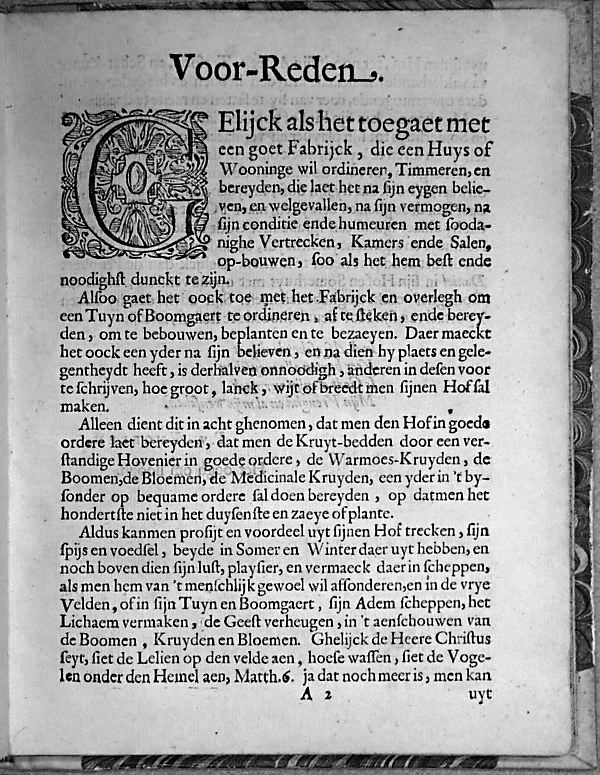 Voor-Reden.
GElijck als het toegaet met
een goet Fabrijck, die een Huys of
Wooninge wil ordineren, Timmeren, en
bereyden, die laet het na sijn eygen belie-
ven, en welgevallen, na sijn vermogen, na
sijn conditie ende humeuren met sooda-
nighe Vertrecken, Kamers ende Salen,
op-bouwen, soo als het hem best ende
noodighst dunckt te zijn.
Alsoo gaet het oock toe met het Fabrijck en overlegh om
een Tuyn of Boomgaert te ordineren, af te steken, ende berey-
den, om te bebouwen, beplanten en te bezaeyen. Daer maeckt
het oock een yder na sijn believen, en na dien hy plaets en gele-
gentheydt heeft, is derhalven onnoodigh, anderen in desen voor
te schrijven, hoe groot, lanck, wijt of breedt men sijnen Hof sal
maken.
Alleen dient dit in acht ghenomen, dat men den Hof in goede
ordere laet bereyden, dat men de Kruyt-bedden door een ver-
standige Hovenier in goede ordere, de Warmoes-Kruyden, de
Boomen, de Bloemen, de Medicinale Kruyden, een yder in 't by-
sonder op bequame ordere sal doen bereyden, op datmen het
hondertste niet in het duysenste en zaeye of plante.
Aldus kanmen profijt en voordeel uyt sijnen Hof trecken, sijn
spijs en voedsel, beyde in Somer en Winter daer uyt hebben, en
noch boven dien sijn lust, playsier, en vermaeck daer in scheppen,
als men hem van 't menschlijk gewoel wil affonderen, en in de vrye
Velden, of in sijn Tuyn en Boomgaert, sijn Adem scheppen, het
Lichaem vermaken, de Geest verheugen, in 't aenschouwen van
de Boomen, Kruyden en Bloemen. Ghelijck de Heere Christus
seyt, siet de Lelien op den velde aen, hoese wassen, siet de Voge-
len onder den Hemel aen, Matth. 6. ja dat noch meer is, men kan
A 2 uyt